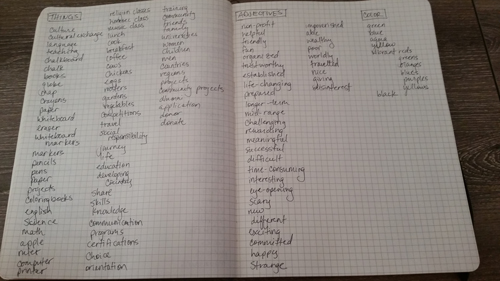 THINGS
culture
cultural exchange
language
teaching
chalkboard
chalk
books
globe
map
crayons
paper
whiteboard
eraser
whiteboard
markers
markers
pencils
pens
paper
projects
coloring books
english
science
math
apple
ruler
computer
printer
religion classes
business class
music class
lunch
cook
breakfast
coffee
cows
chickens
eggs
gardens
vegetables
competitions
travel
social
responsibility
journey
life
education
developing
country
share
skills
knowledge
communication
programs
certifications
choice
orientation
training
community
friends
family
universities
women
children
men
countries
regions
projects
community projects
alumni
application
donor
donate
ADJECTIVES
non-profit
helpful
friendly
fun
organized
established
life-changing
prepared
longer-term
mid-range
challenging
rewarding
meaningful
successful
difficult
time-consuming
interesting
eye-opening
scary
new
different
exciting
committed
happy
strange
impoverished
able
wealthy
poor
worldly
travelled
nice
loving
disinterest
COLOR
green
blue
aqua
yellow
vibrant reds
greens
blues
purples
yellows
black